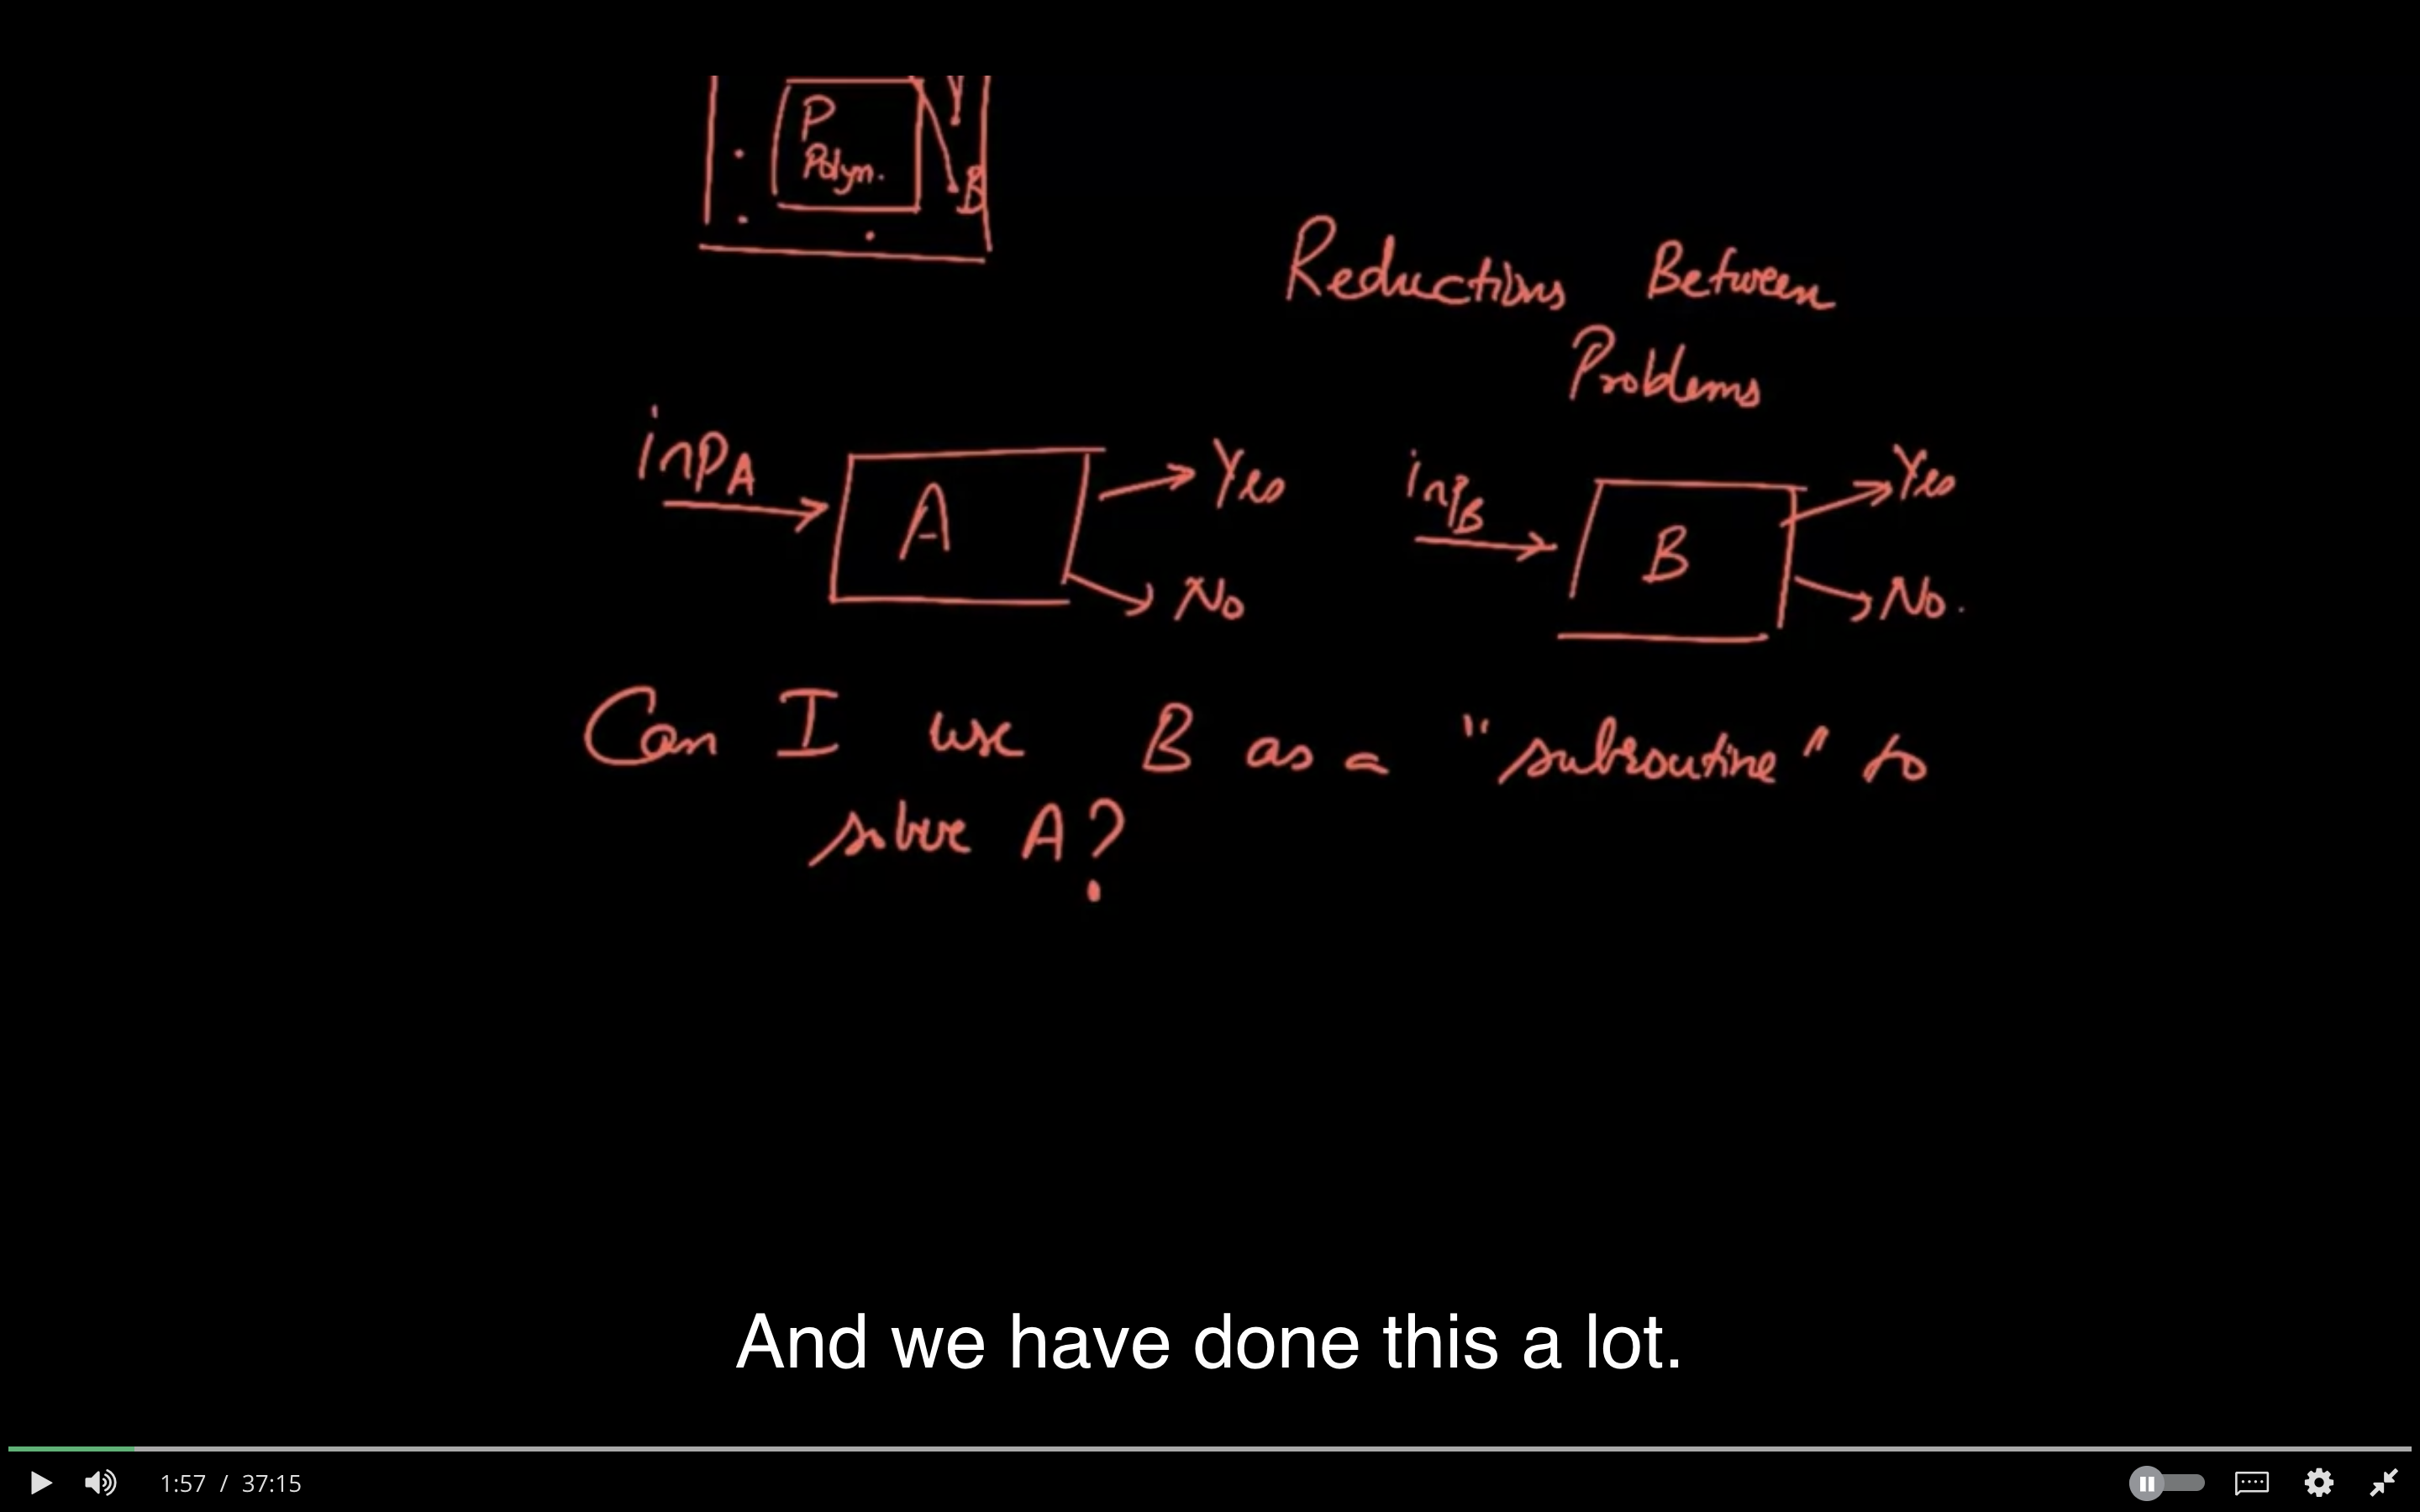 P
Polym.
B
Reductions Between
Problems
inpA
A
Yes
No
inpB
B
Yes
No.
Can I use B as a "subroutine" to
solve A?
And we have done this a lot.
1:57 / 37:15